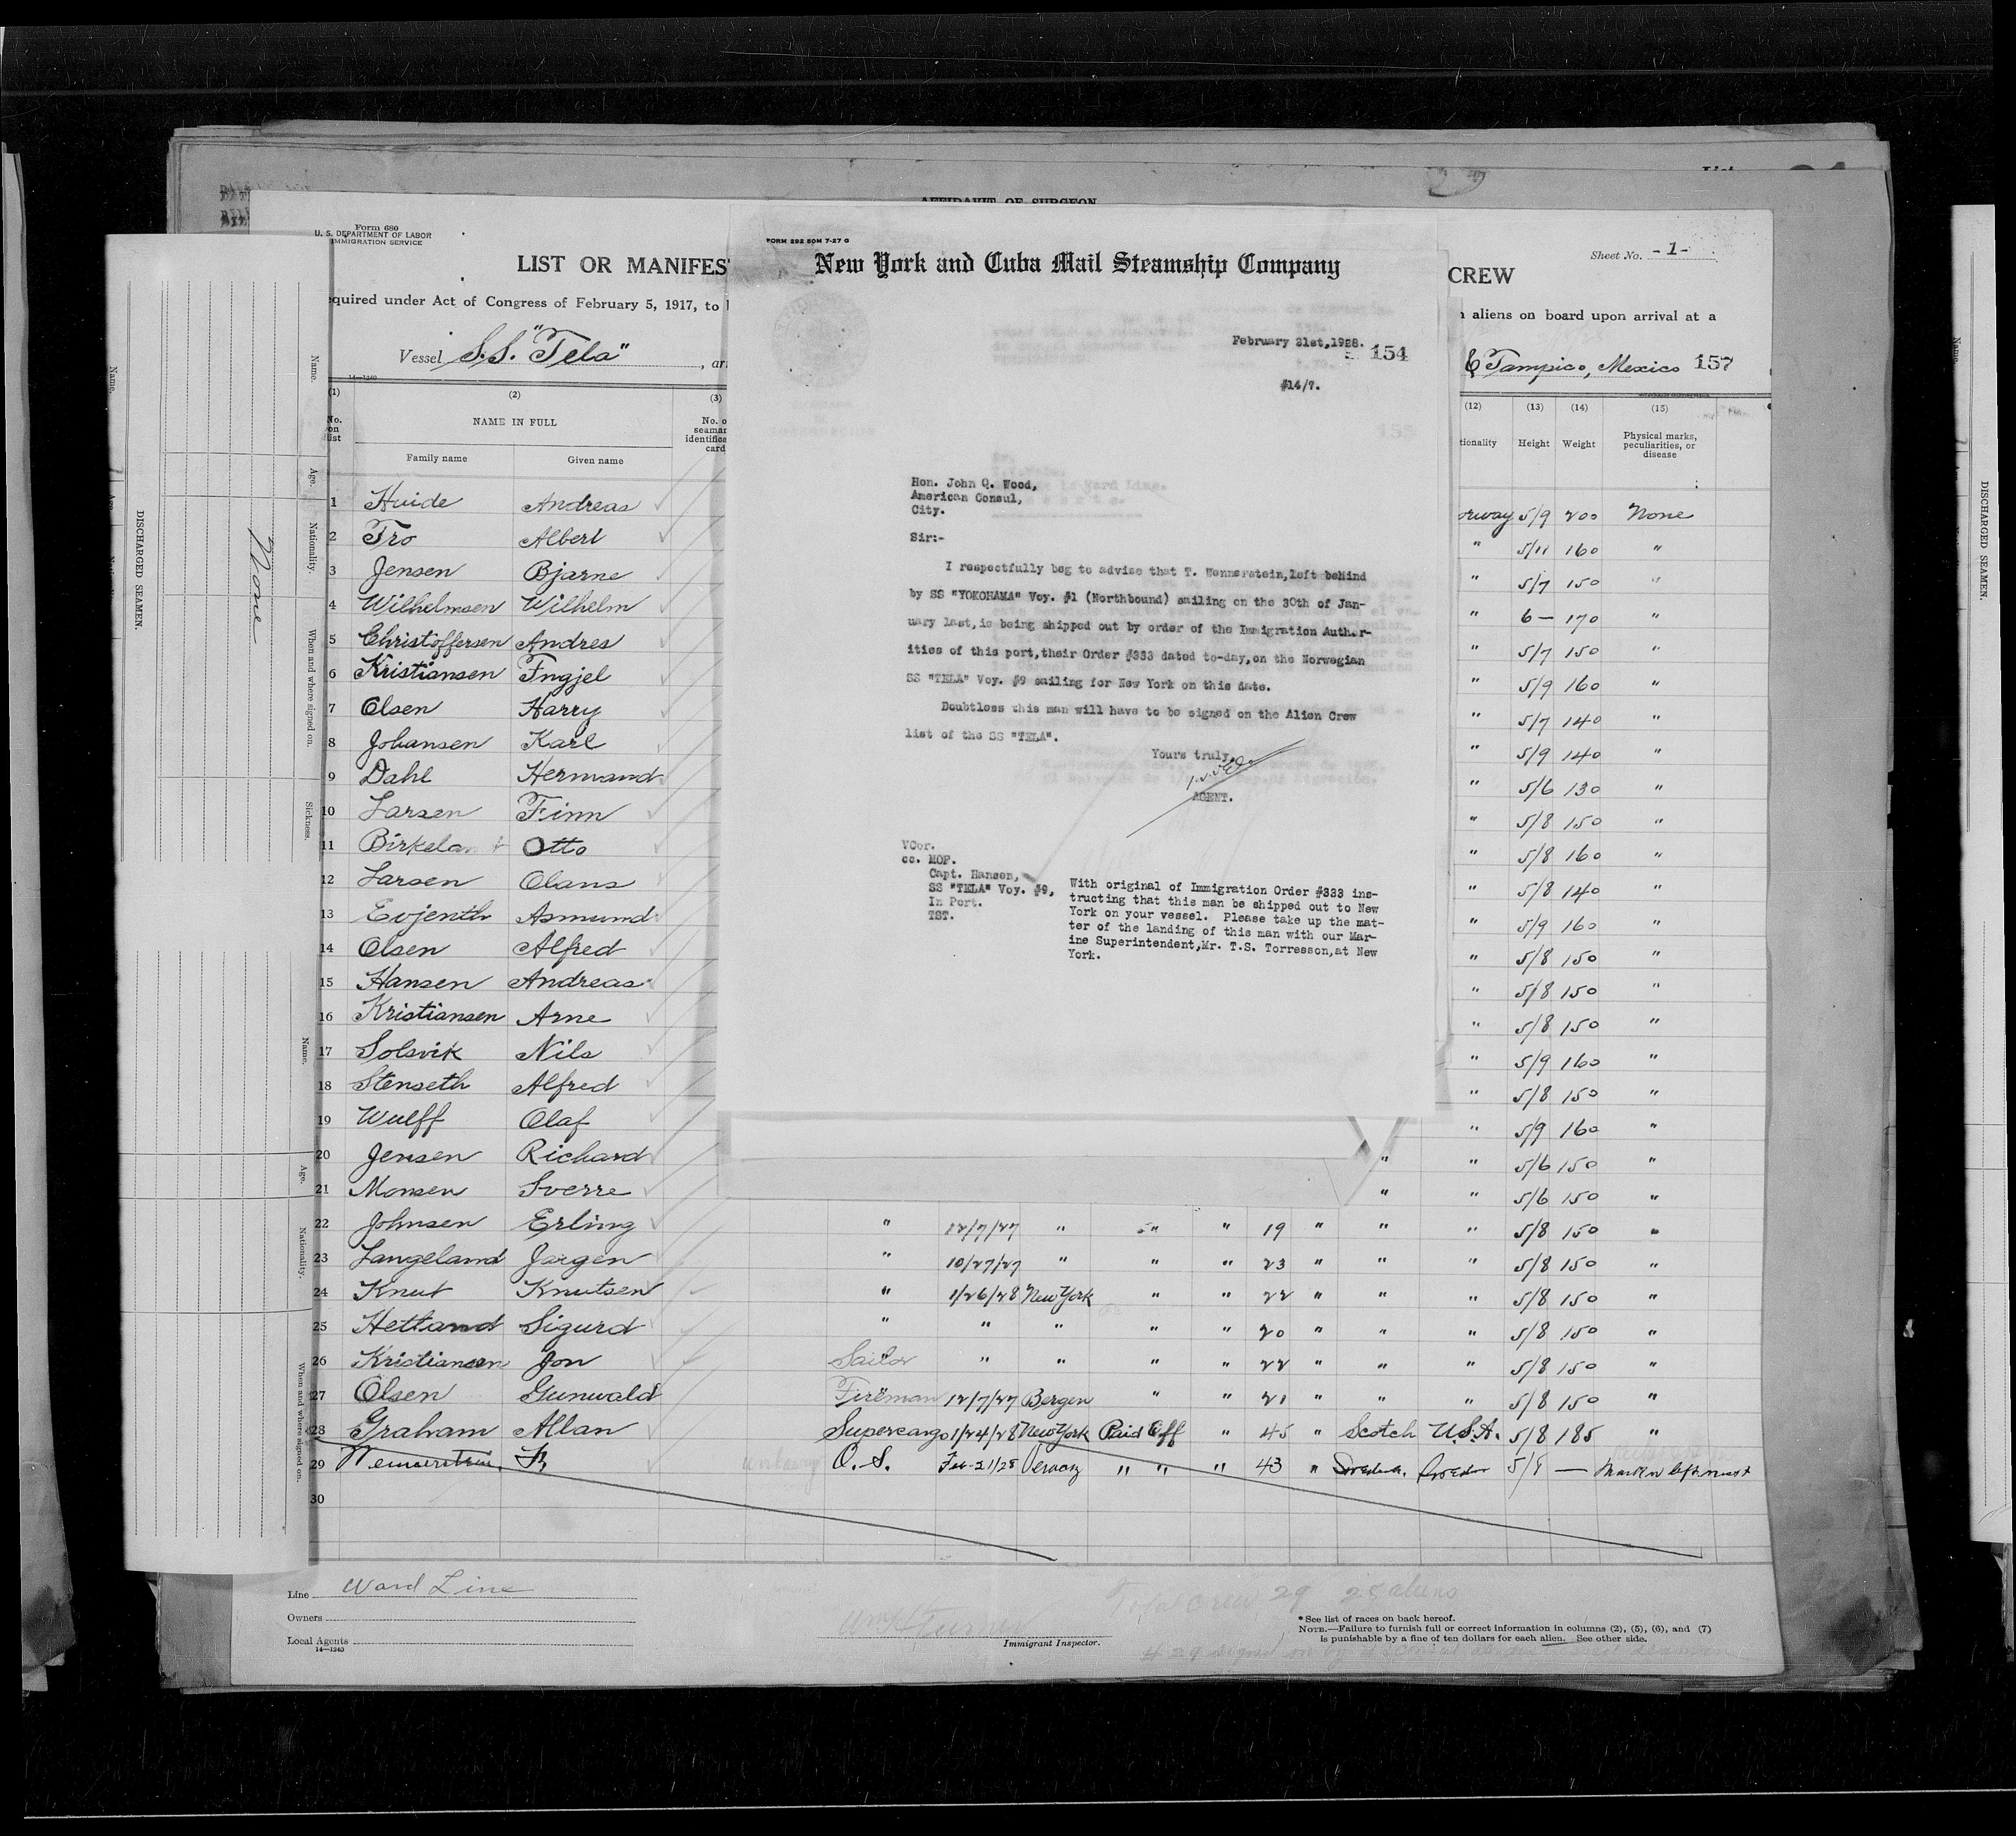 AFFIDAVIT OF SURGEON
Form 680
U. S. DEPARTMENT OF LABOR
IMMIGRATION SERVICE
LIST OR MANIFES
CREW
Sheet No. -1-
quired under Act of Congress of February 5, 1917, to
n aliens on board upon arrival at a
Vessel S.S. "Tela", ar
& Tampico, Mexico 157
14—1240
(1) (2) (3) (12) (13) (14) (15)
No. on list
NAME IN FULL
Family name Given name
No. o
seaman
identifica
card
tionality Height Weight Physical marks, peculiarities, or disease
1 Huide Andreas orway 5/9 200 None
2 Tro Albert " 5/11 160 "
3 Jensen Bjarne " 5/7 150 "
4 Wilhelmsen Wilhelm " 6— 170 "
5 Christoffersen Andres " 5/7 150 "
6 Kristiansen Fngjel " 5/9 160 "
7 Olsen Harry " 5/7 140 "
8 Johansen Karl " 5/9 140 "
9 Dahl Hermand " 5/6 130 "
10 Larsen Finn " 5/8 150 "
11 Birkeland Otto " 5/8 160 "
12 Larsen Olans " 5/8 140 "
13 Evjenth Asmund " 5/9 160 "
14 Olsen Alfred " 5/8 150 "
15 Hansen Andreas " 5/8 150 "
16 Kristiansen Arne " 5/8 150 "
17 Solsvik Nils " 5/9 160 "
18 Stenseth Alfred " 5/8 150 "
19 Wulff Olaf " 5/9 160 "
20 Jensen Richard " " 5/6 150 "
21 Monsen Sverre " " 5/6 150 "
22 Johnsen Erling " 12/7/27 " " " 19 " " " 5/8 150 "
23 Langeland Jørgen " 10/27/27 " " " 23 " " " 5/8 150 "
24 Knut Knutsen " 1/26/28 New York " " 22 " " " 5/8 150 "
25 Hetland Sigurd " " " " " 20 " " " 5/8 150 "
26 Kristiansen Jon Sailor " " " " 22 " " " 5/8 150 "
27 Olsen Gunwald Fireman 12/7/27 Bergen " " 21 " " " 5/8 150 "
28 Graham Allan Supercargo 1/24/28 New York Paid Off " 45 " Scotch U.S.A. 5/8 185 "
29 Wennerstein, O. S. Feb-21/28 " " " 43 " 5/9 — Mark n left
30
Line Ward Line
Owners
Local Agents
14—1240
Immigrant Inspector.
Total crew 29 28 aliens
*See list of races on back hereof.
NOTE.—Failure to furnish full or correct information in columns (2), (5), (6), and (7)
is punishable by a fine of ten dollars for each alien. See other side.
FORM 292 50M 7-27 G
New York and Cuba Mail Steamship Company
February 21st,1928.
154
#14/7.
Hon. John Q. Wood,
American Consul,
City.
Sir:-
I respectfully beg to advise that T. Wennerstein,left behind
by SS "YOKOHAMA" Voy. #1 (Northbound) sailing on the 30th of Jan-
uary last,is being shipped out by order of the Immigration Author-
ities of this port,their Order #333 dated to-day,on the Norwegian
SS "TELA" Voy. #9 sailing for New York on this date.
Doubtless this man will have to be signed on the Alien Crew
list of the SS "TELA".
Yours truly,
AGENT.
VCor.
cc. MOP.
Capt. Hansen,
SS "TELA" Voy. #9,
In Port.
TST.
With original of Immigration Order #333 ins-
tructing that this man be shipped out to New
York on your vessel. Please take up the mat-
ter of the landing of this man with our Mar-
ine Superintendent,Mr. T.S. Torresson,at New
York.
DISCHARGED SEAMEN.
Name.
Age.
Nationality.
When and where signed on.
Sickness.
None
Name.
Age.
Nationality.
When and where signed on.
Name.
DISCHARGED SEAMEN.
Name.
DISCHARGED SEAMEN.